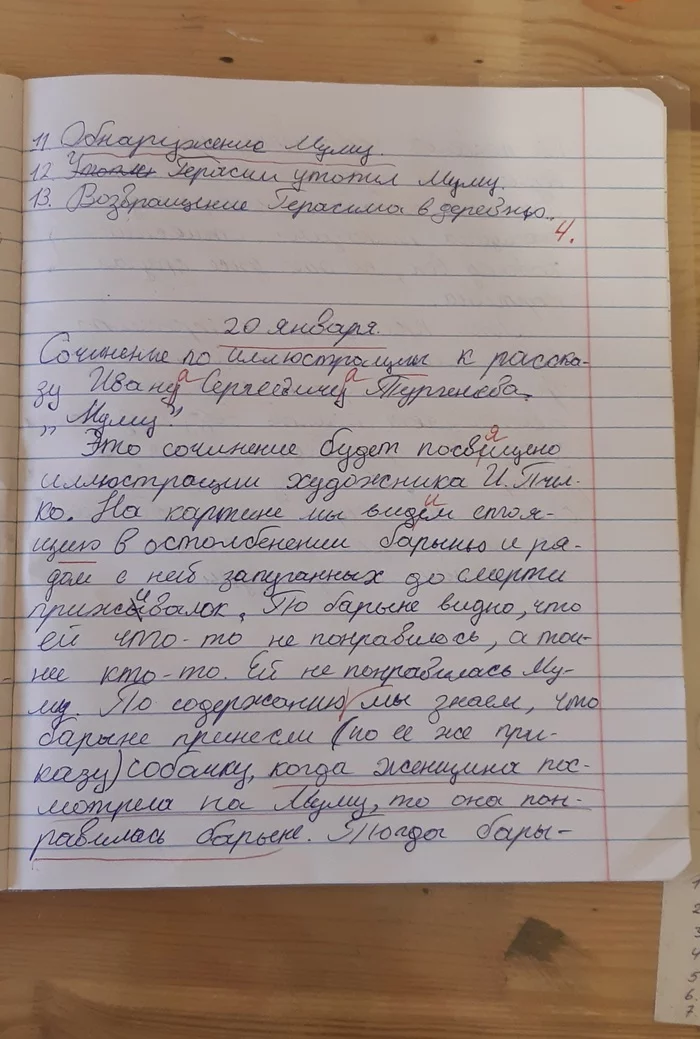 11 Обнаружение Муму.
12 Утопил Герасим утопил Муму.
13. Возвращение Герасима в деревню.
4.
20 января.
Сочинение по иллюстрации к расска-
зу Ивану Сергеевичу Тургенева.
а а
„Муму".
я
Это сочинение будет посвещено
иллюстрации художника И. Пчел-
ко. На картине мы видем стоя-
и
щию в остолбенении барыню и ря-
дом с ней запуганных до смерти
приживалок. По барыне видно, что
ей что-то не понравилось, а точ-
нее кто-то. Ей не понравилась Му-
му. По содержанию мы знаем, что
барыне принесли (по ее же при-
казу) собачку, когда женщина пос-
мотрела на Муму, то она пон-
равилась барыне. Тогда бары-